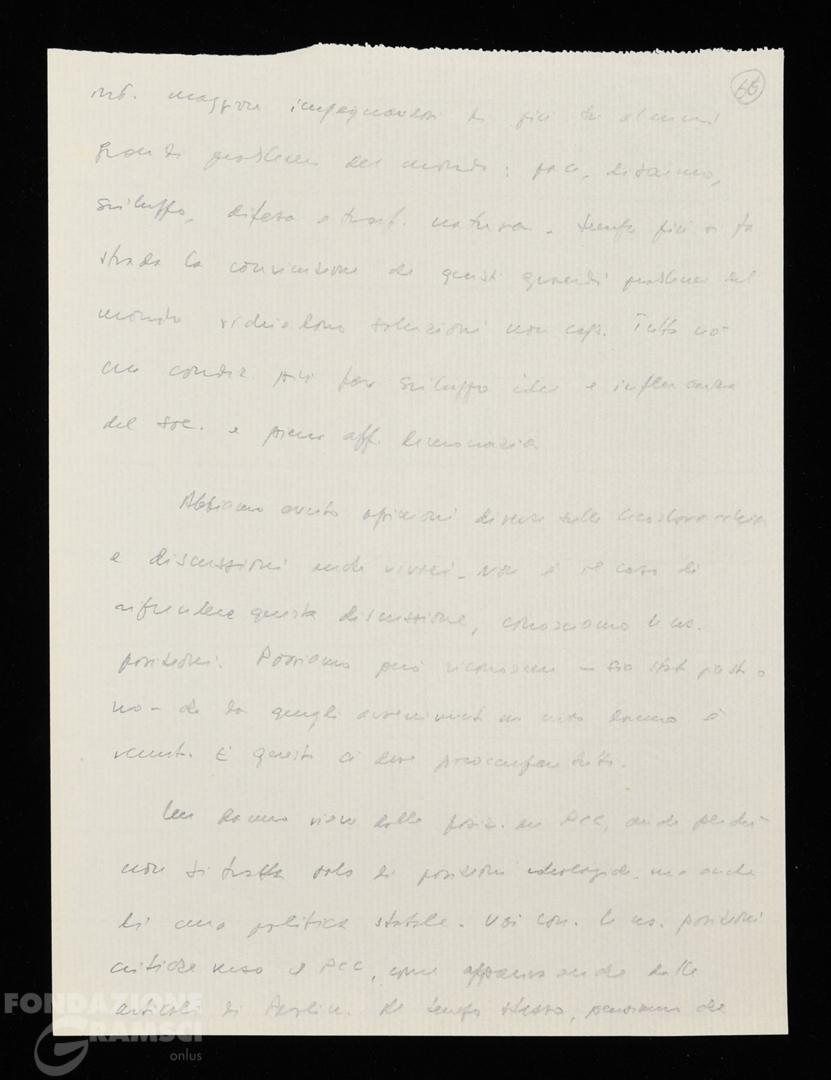 66
int. maggior impegnandosi di più tu
grandi problemi del mondo: pace, disarmo,
sviluppo, difesa e trasf. natura. Sempre più si fa
strada la convinzione che questi grandi problemi del
mondo richiedono soluzioni non cap. Tutto
condiz. più fav. sviluppo idee e influenza
del soc. e piena aff. democrazia
Abbiamo avuto opinioni diverse sulla Cecoslovacchia
e discussioni anche vivaci. Non è il caso di
riprendere questa discussione, conosciamo le ns.
posizioni. Possiamo però riconoscere - sia stat giusti o
no - che da quegli avvenimenti un danno è
venuto. E questo ci deve preoccupare tutti.
Un danno viene dalle posiz. del PCC, anche perché
non si tratta solo di posizioni ideologiche, ma anche
di una politica statale. Voi con. le ns. posizioni
critiche verso il PCC, come appaiono anche dalle
articoli di. Al tempo stesso, pensiamo che
FONDAZIONE
GRAMSCI
onlus